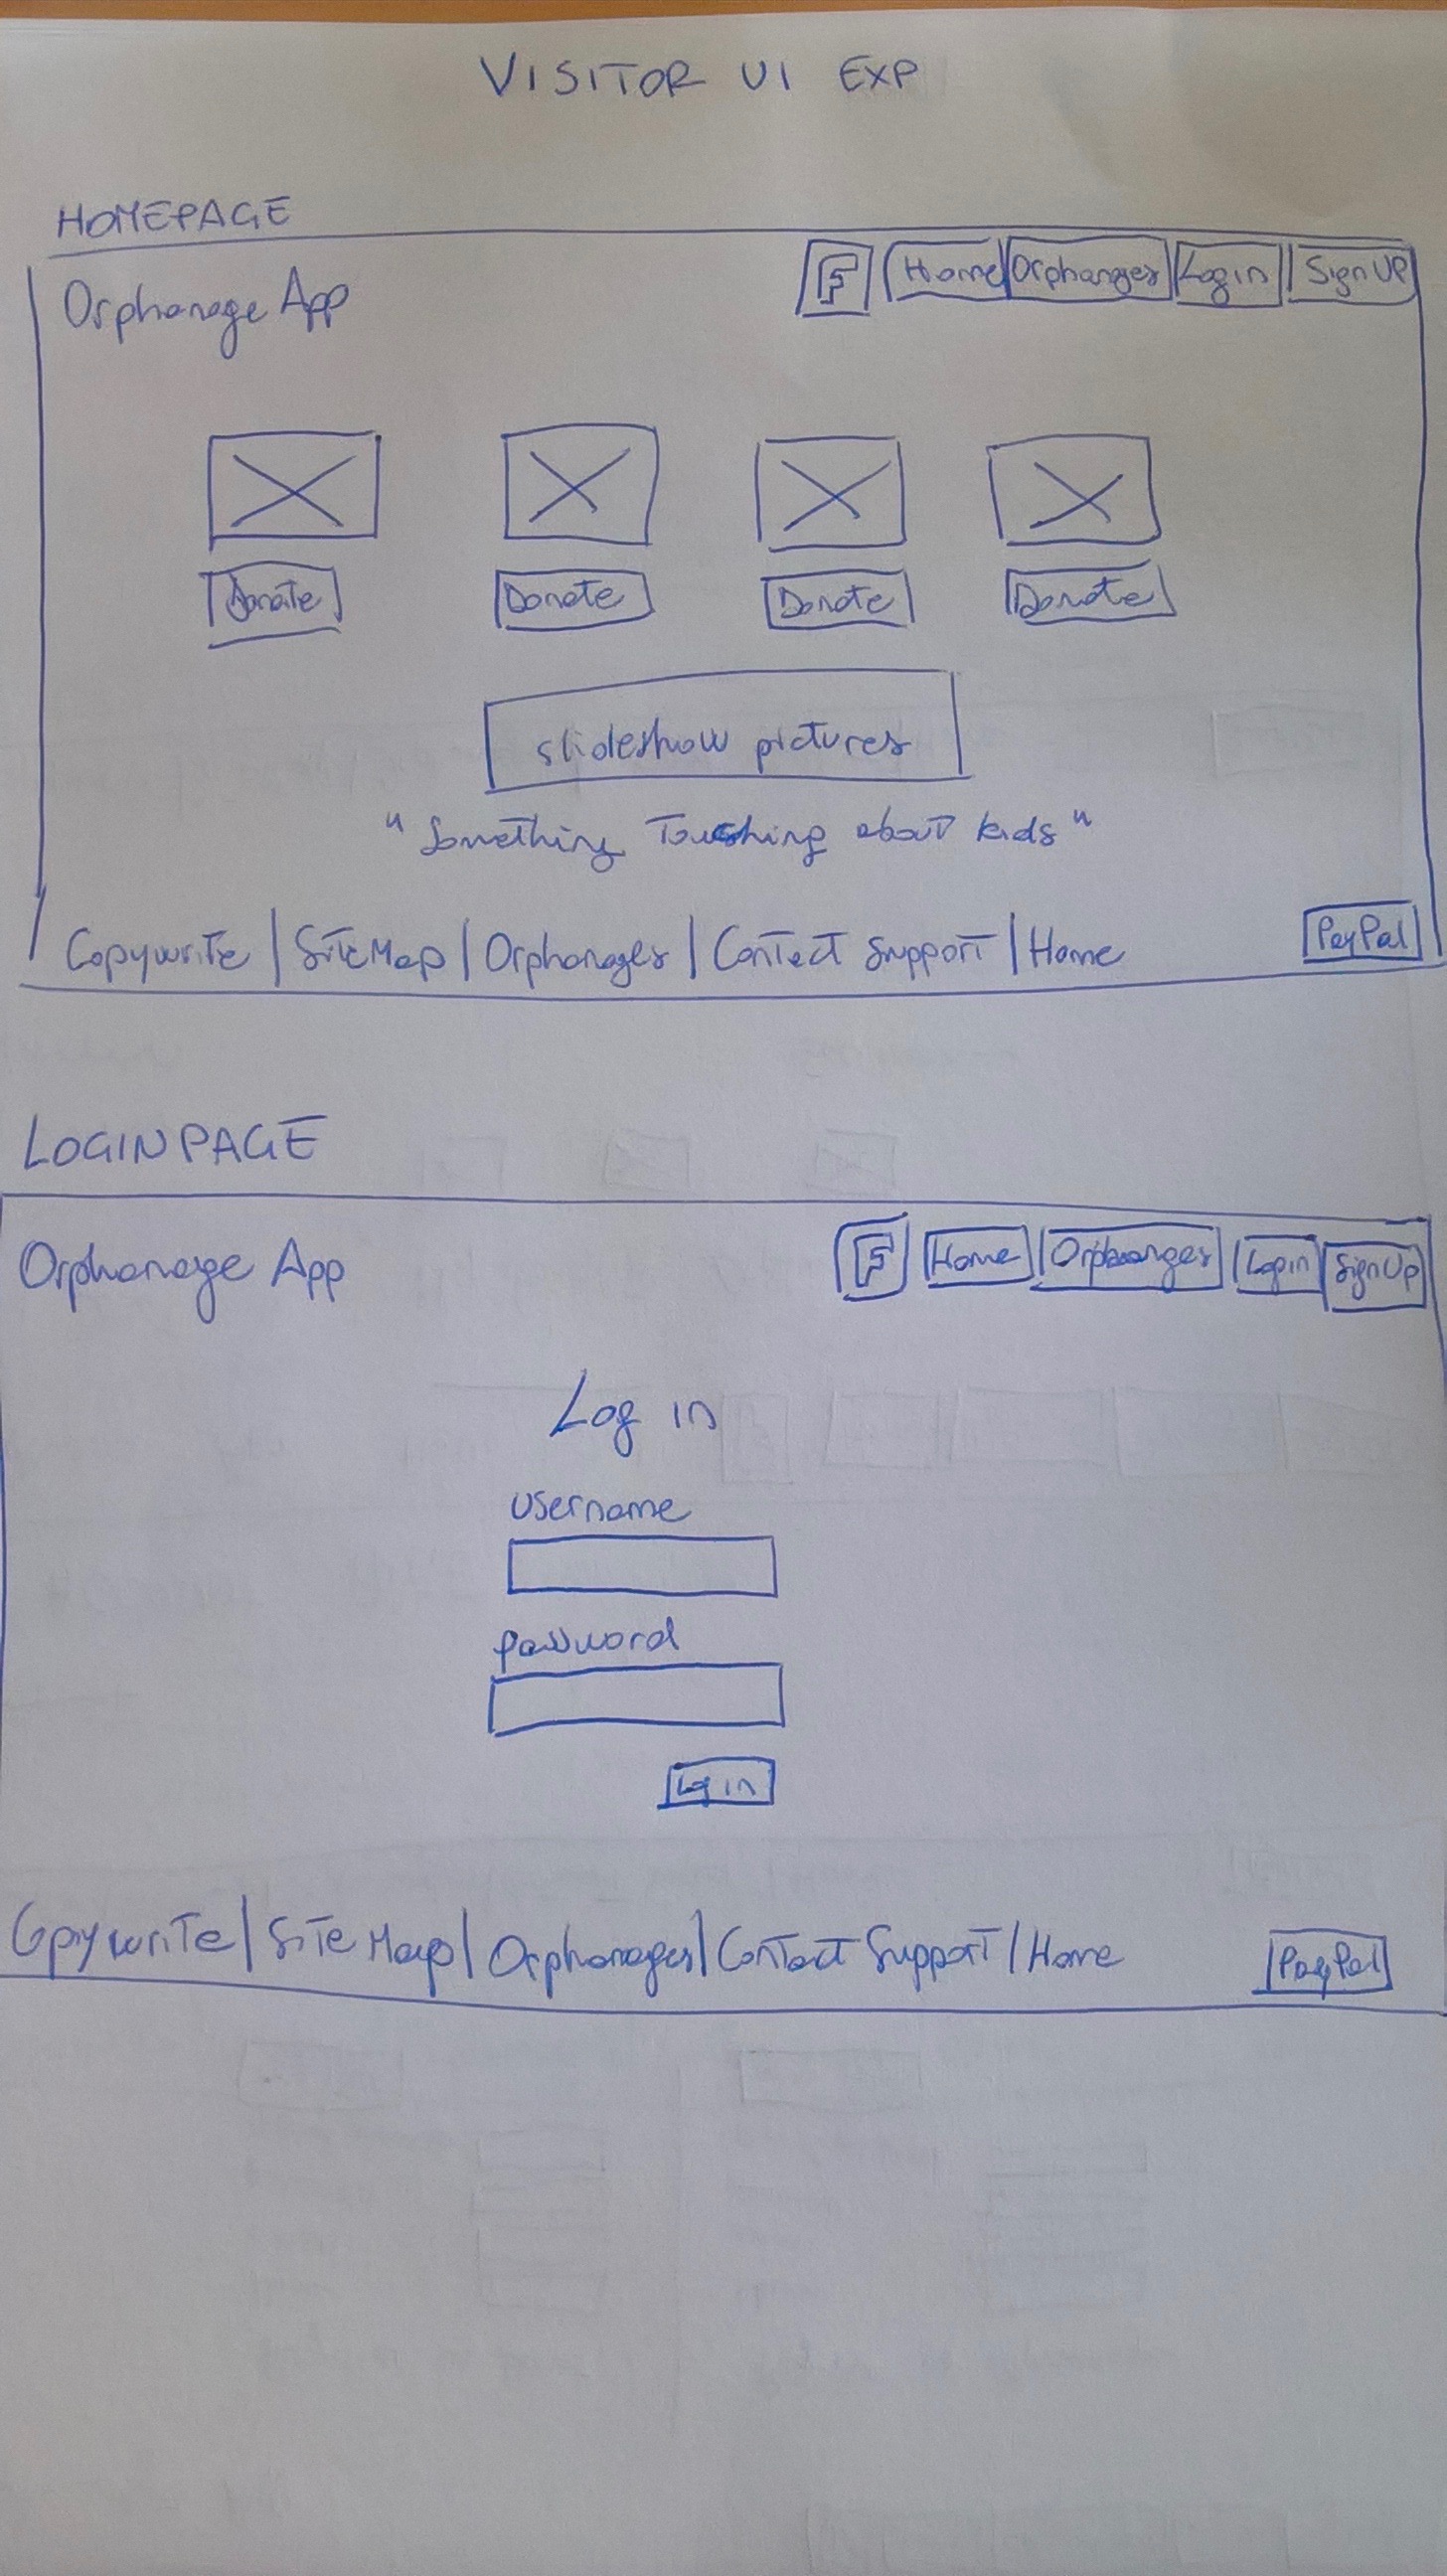 VISITOR UI EXP
HOMEPAGE
Orphanage App F Home Orphanges Login SignUP
Donate Donate Donate Donate
slideshow pictures
"Something Touching about kids"
Copywrite | SiteMap | Orphanages | Contact Support | Home PayPal
LOGIN PAGE
Orphanage App F Home Orphanges Login SignUp
Log in
username
password
Log in
Copywrite | Site Map | Orphanages | Contact Support | Home PayPal